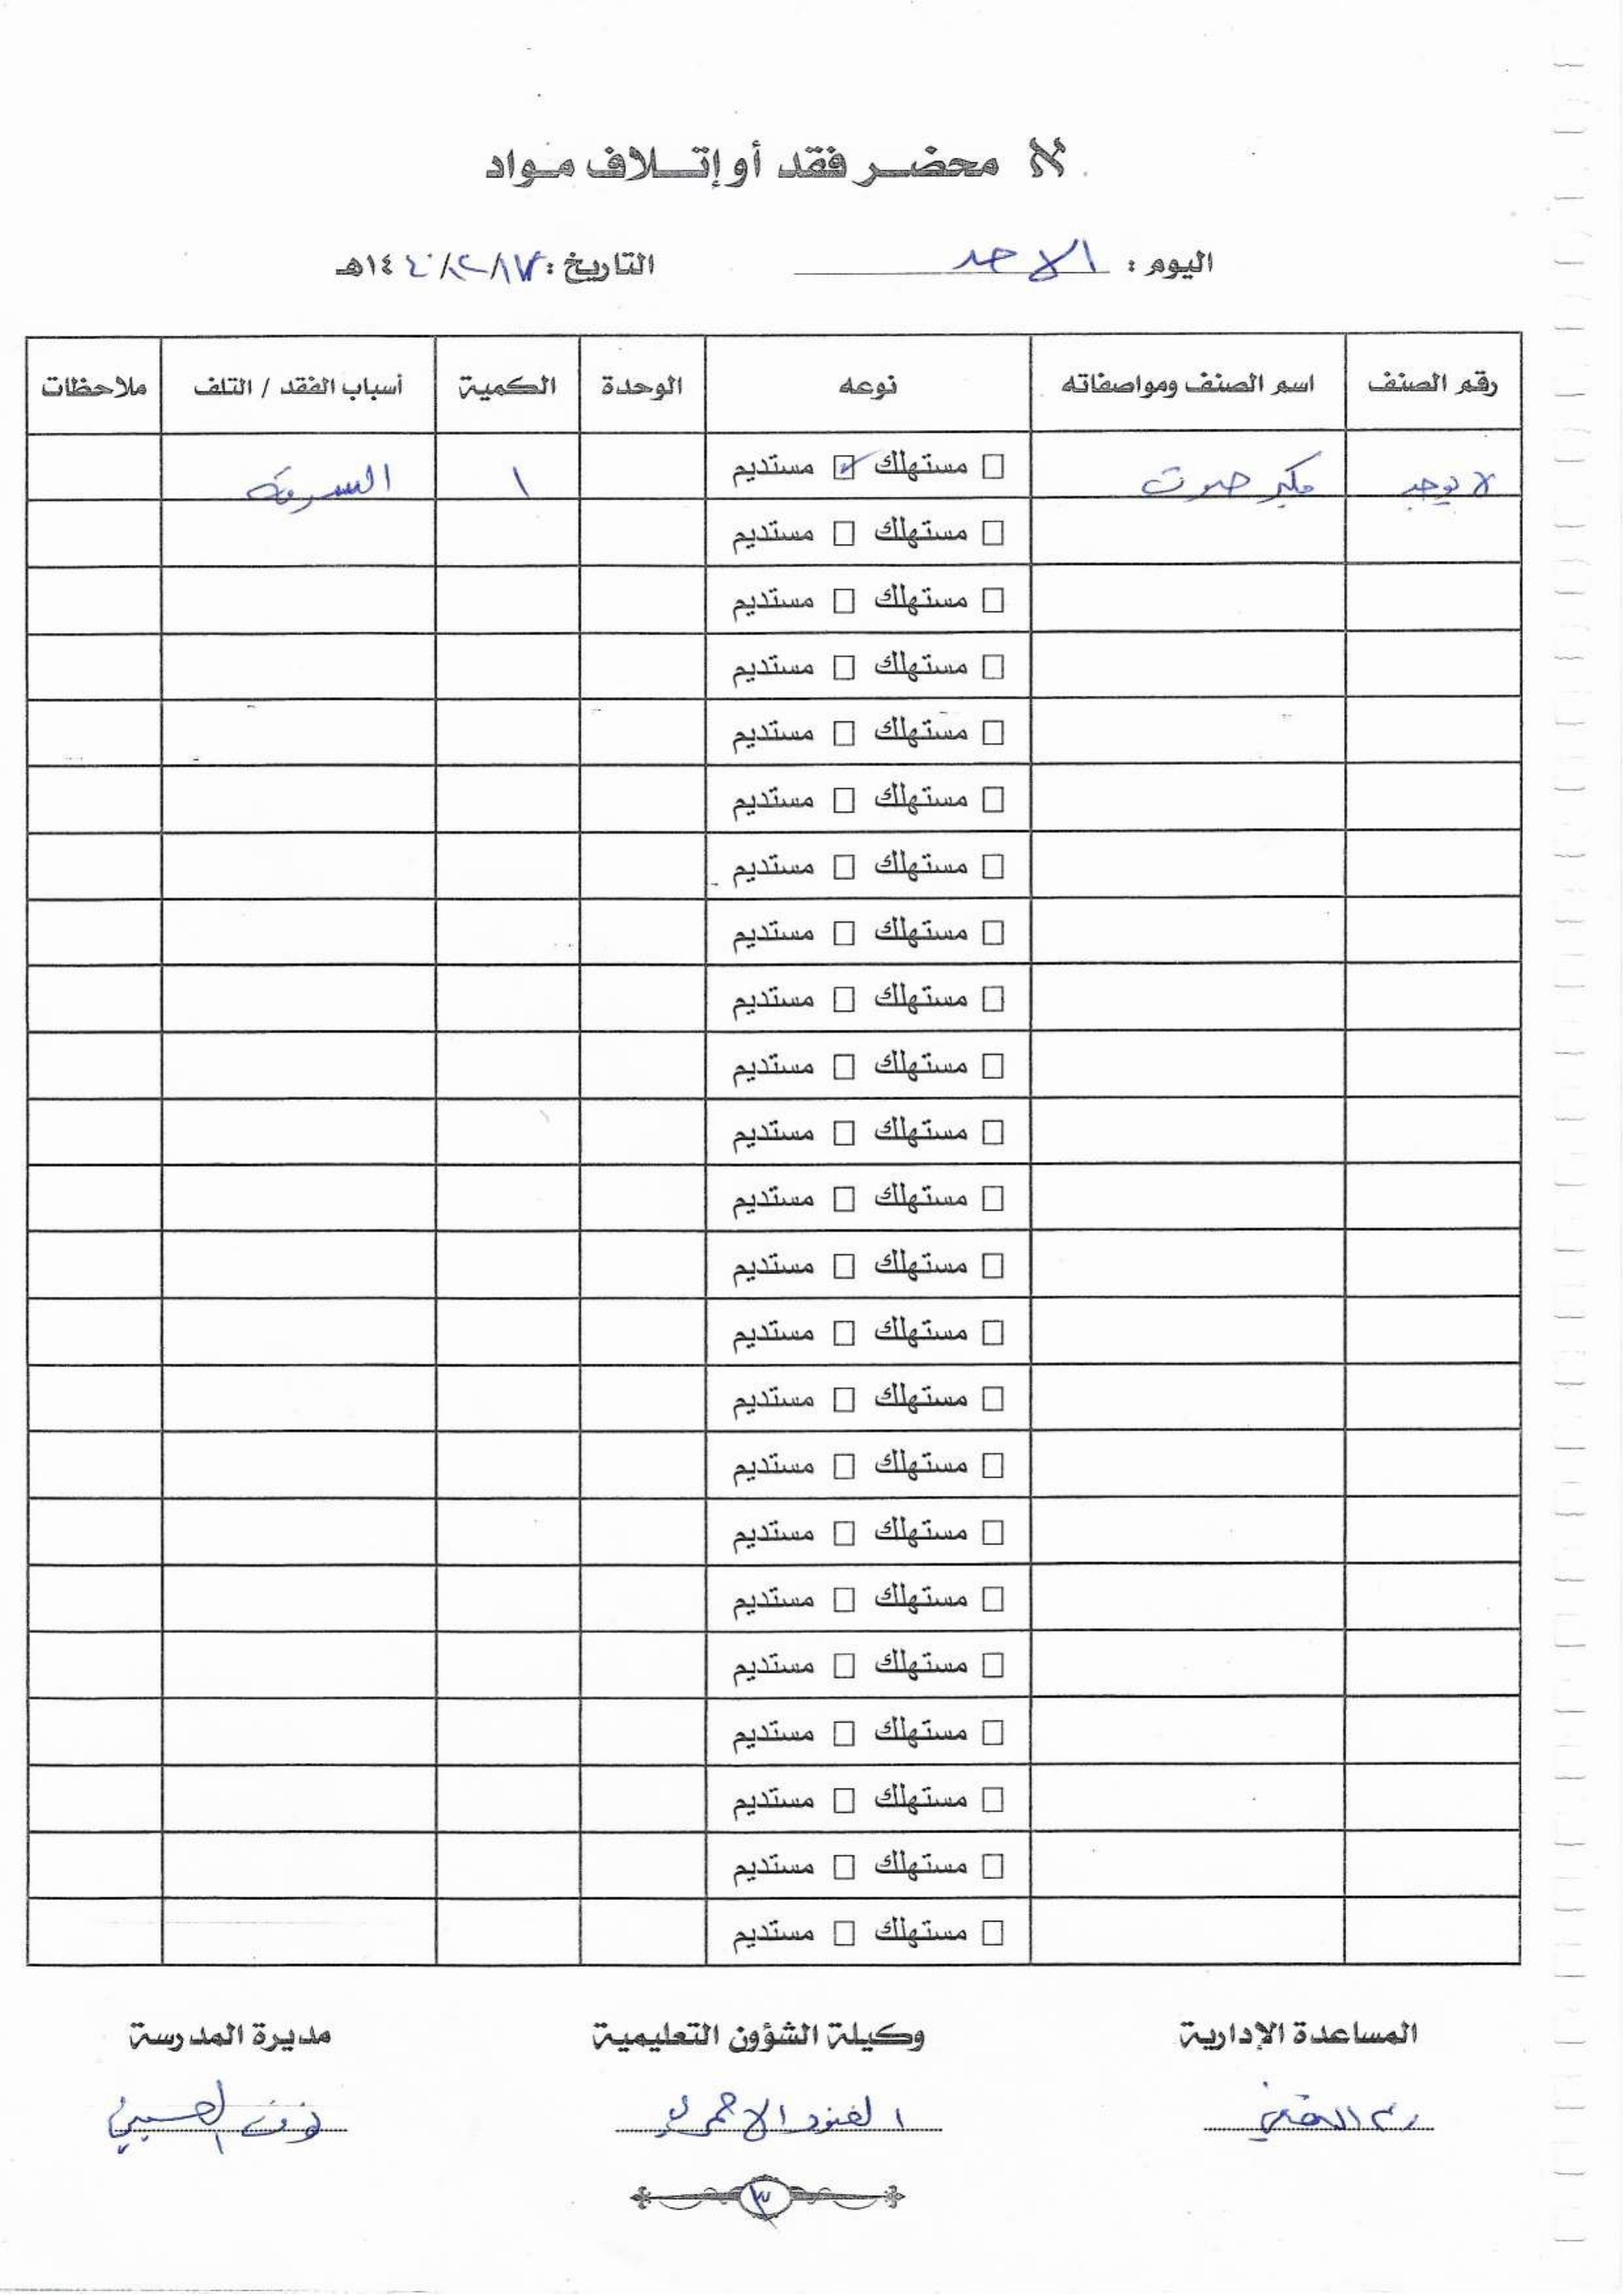 محضر فقد أو إتلاف مواد
اليوم : الاحد التاريخ : ١٧/٢/١٤٤٠هـ
رقم الصنف اسم الصنف ومواصفاته نوعه الوحدة الكمية أسباب الفقد / التلف ملاحظات
لا يوجد مكبر صوت □ مستهلك ☑ مستديم ١ السرقة
□ مستهلك □ مستديم
□ مستهلك □ مستديم
□ مستهلك □ مستديم
□ مستهلك □ مستديم
□ مستهلك □ مستديم
□ مستهلك □ مستديم
□ مستهلك □ مستديم
□ مستهلك □ مستديم
□ مستهلك □ مستديم
□ مستهلك □ مستديم
□ مستهلك □ مستديم
□ مستهلك □ مستديم
□ مستهلك □ مستديم
□ مستهلك □ مستديم
□ مستهلك □ مستديم
□ مستهلك □ مستديم
□ مستهلك □ مستديم
□ مستهلك □ مستديم
□ مستهلك □ مستديم
□ مستهلك □ مستديم
□ مستهلك □ مستديم
□ مستهلك □ مستديم
المساعدة الإدارية وكيلة الشؤون التعليمية مديرة المدرسة
العنود الاحمري
٣